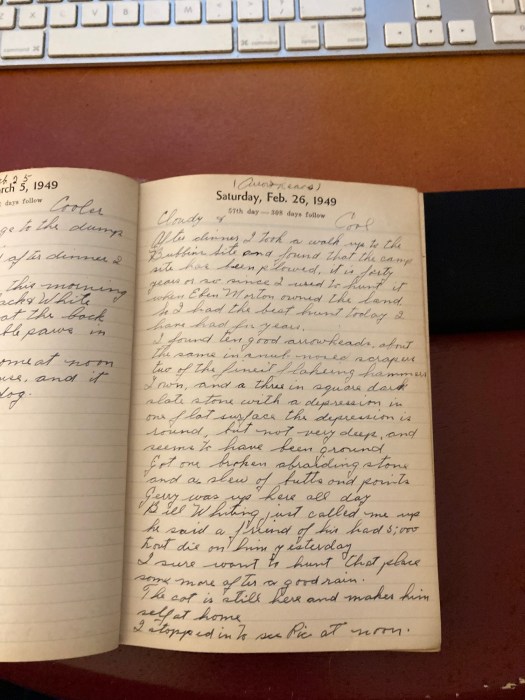 rch 5, 1949
days follow
Cooler
ge to the dump
after dinner I
this morning
ack & White
at the back
ble paws in
ome at noon
use, and it
dog.
(Arrowheads)
Saturday, Feb. 26, 1949
57th day — 308 days follow
Cloudy & Cool
After dinner I took a walk up to the
site and found that the camp
site has been plowed, it is forty
years or so since I used to hunt it
when Eben Morton owned the land
I had the best hunt today I
have had for years.
I found ten good arrowheads, about
the same in snub-nosed scrapers
two of the finest flakeing hammers
I own, and a three in square dark
slate stone with a depression in
one flat surface the depression is
round, but not very deep, and
seems to have been ground
Got one broken abraiding stone
and a slew of butts and points
Jerry was up here all day
Bill Whiting just called me up
he said a friend of his had 5,000
trout die on him yesterday
I sure want to hunt that place
some more after a good rain.
The cat is still here and makes him
self at home
I stopped in to see Pic at noon.